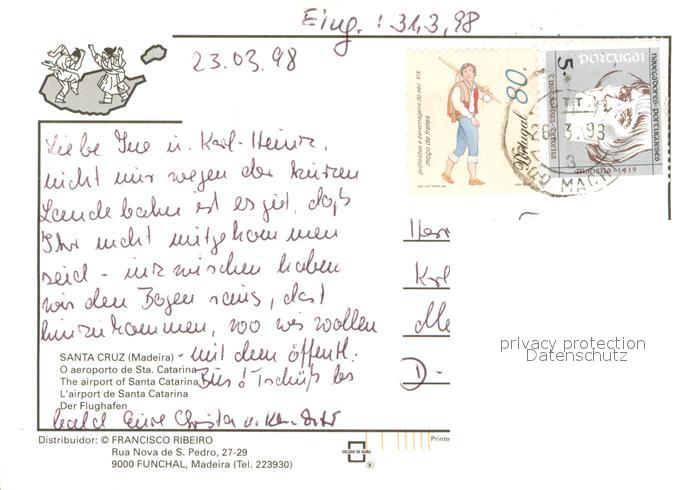 Eing.: 31.3.98
23.03.98
Liebe Ine u. Karl-Heinz,
nicht nur wegen der kurzen
Landebahn ist es gut, daß
Ihr nicht mitgekommen
seid - inzwischen haben
wir den Bogen raus, dort
hinzukommen, wo wir wollen
- mit dem öffentl.
Bus! Tschüß bis
bald Eure Christa u.
SANTA CRUZ (Madeira)
O aeroporto de Sta. Catarina
The airport of Santa Catarina
L'airport de Santa Catarina
Der Flughafen
Distribuidor: © FRANCISCO RIBEIRO
Rua Nova de S. Pedro, 27-29
9000 FUNCHAL, Madeira (Tel. 223930)
profissões e personagens do séc. XIX
moço de fretes
80.
Portugal
5.
PORTUGAL
navegadores portugueses
madeira 1419
Herr
Karl
D-
ESCUDO DE OURO
®
Printe
privacy protection
Datenschutz